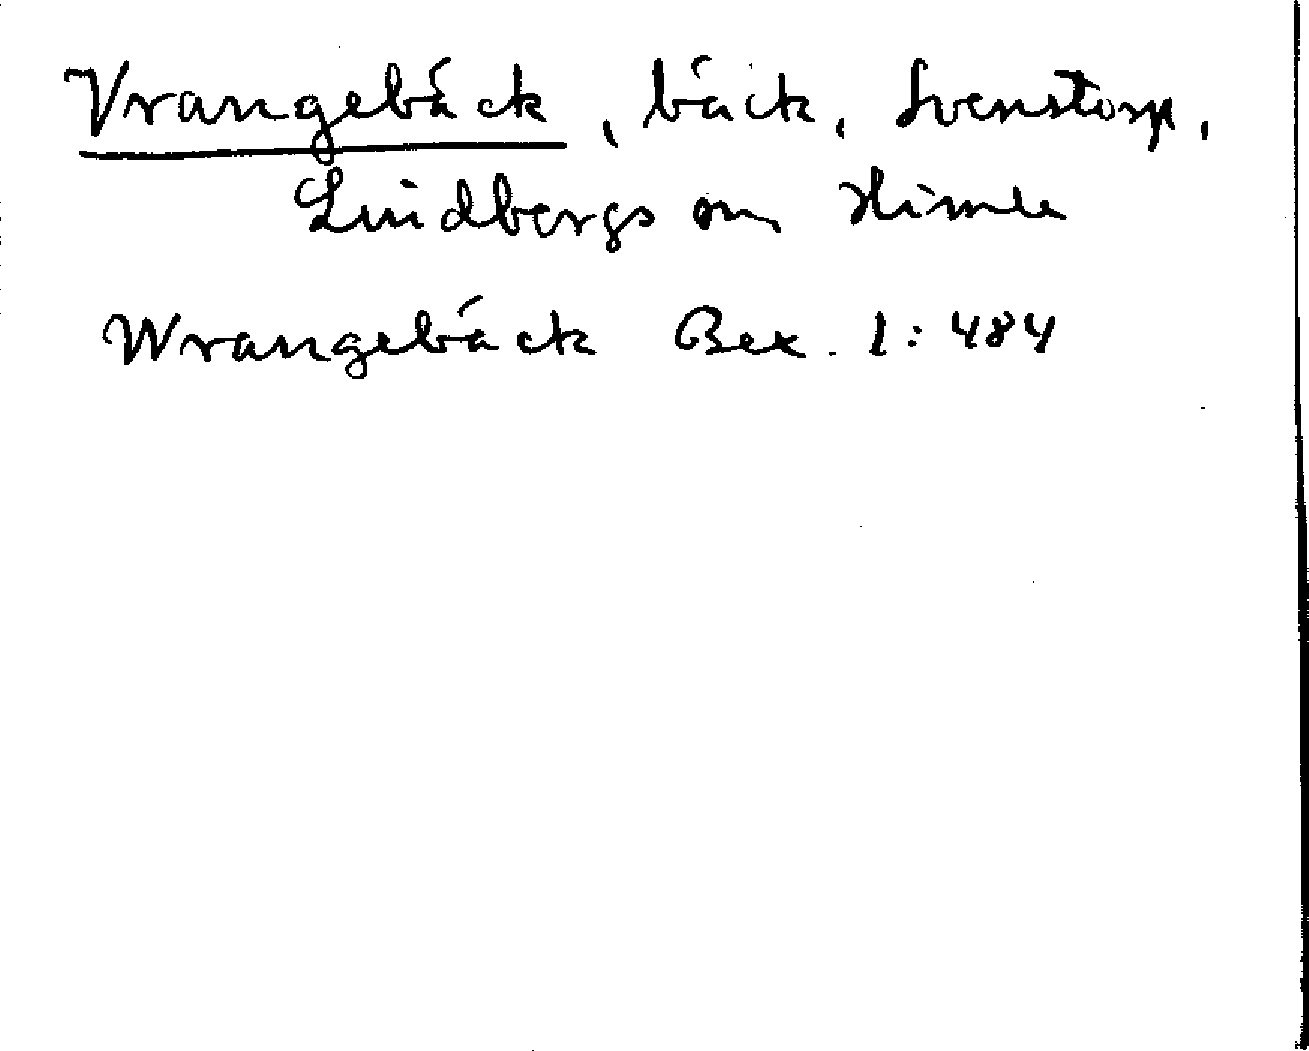 Vrangebäck, bäck, Svenstorp,
Lindbergs sn, Himle
Wrangebäck Bex. 1:484